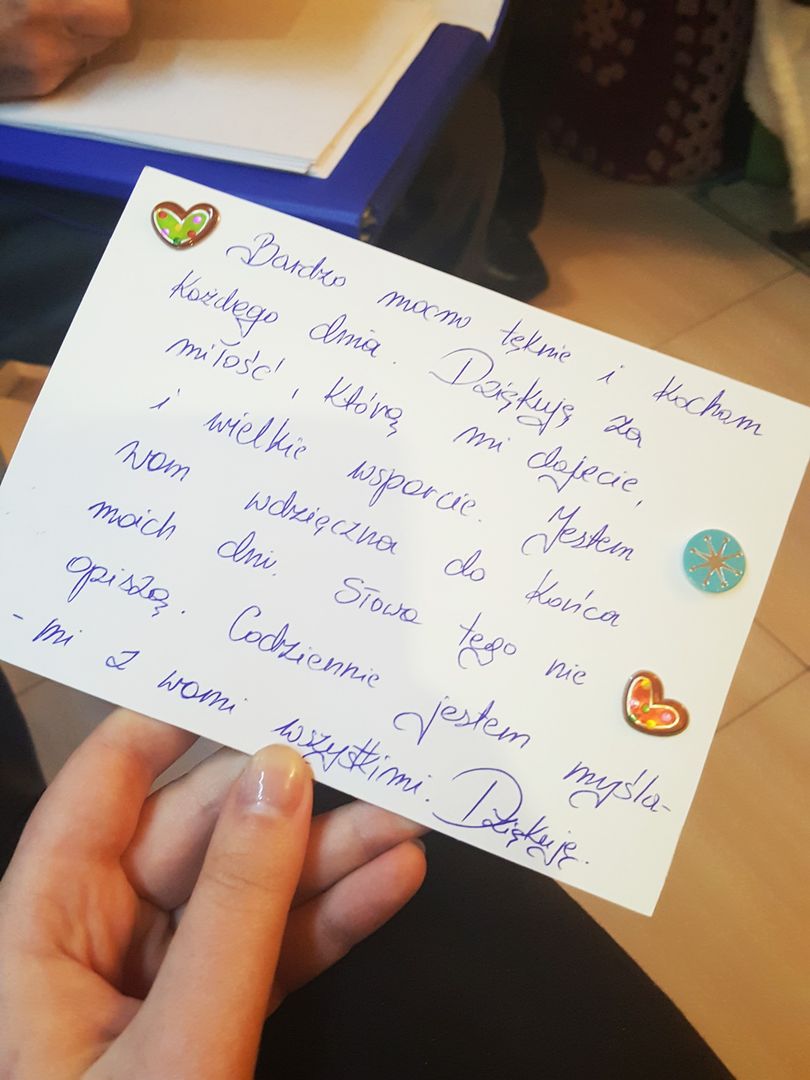 Bardzo mocno tęknie i kocham
każdego dnia. Dziękuję za
miłość, którą mi dajecie,
i wielkie wsparcie. Jestem
wam wdzięczna do końca
moich dni. Słowa tego nie
opiszą. Codziennie jestem myśla-
-mi z wami wszystkimi. Dziękuję.